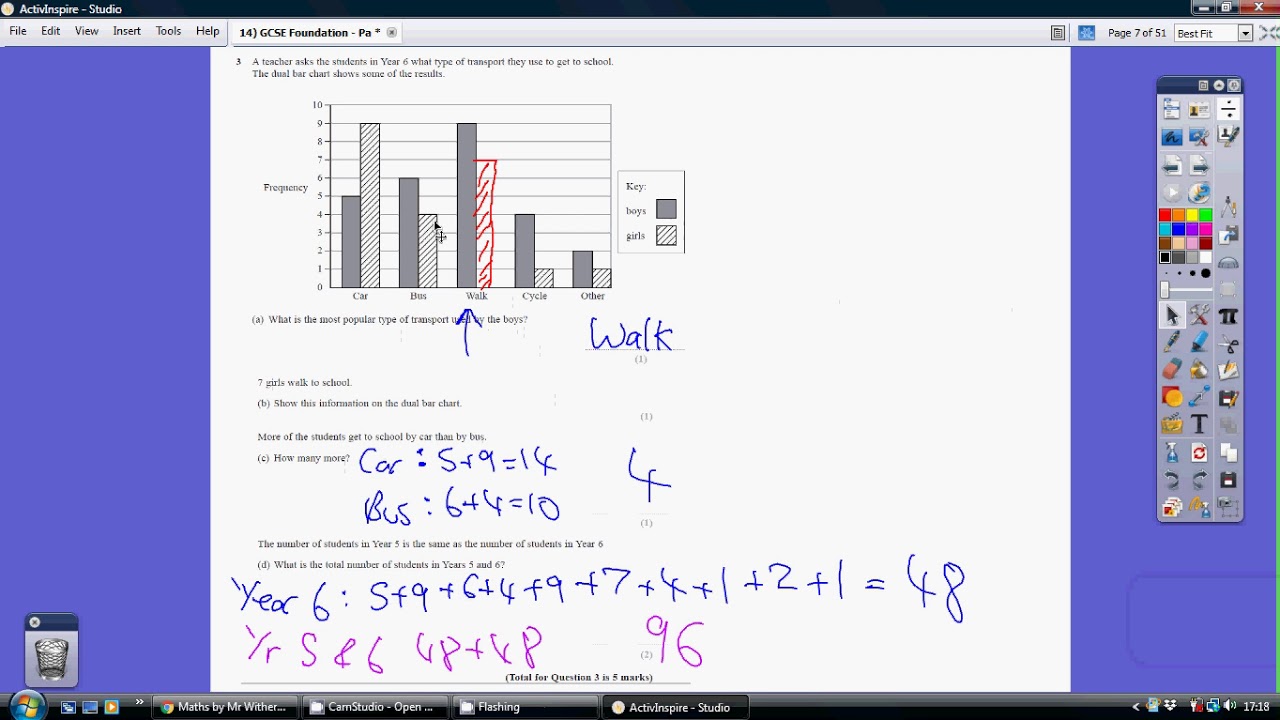 ActivInspire - Studio
File Edit View Insert Tools Help 14) GCSE Foundation - Pa * Page 7 of 51 Best Fit
3 A teacher asks the students in Year 6 what type of transport they use to get to school.
The dual bar chart shows some of the results.
10
9
8
7
6
5
4
3
2
1
0
Frequency
Car Bus Walk Cycle Other
Key:
boys
girls
(a) What is the most popular type of transport used by the boys?
Walk
(1)
7 girls walk to school.
(b) Show this information on the dual bar chart.
(1)
More of the students get to school by car than by bus.
(c) How many more? Car : 5+9=14
4
Bus : 6+4=10
(1)
The number of students in Year 5 is the same as the number of students in Year 6
(d) What is the total number of students in Years 5 and 6?
Year 6 : 5+9+6+4+9+7+4+1+2+1 = 48
Yr 5 & 6 48+48 96
(2)
(Total for Question 3 is 5 marks)
Maths by Mr Wither... CamStudio - Open ... Flashing ActivInspire - Studio 17:18